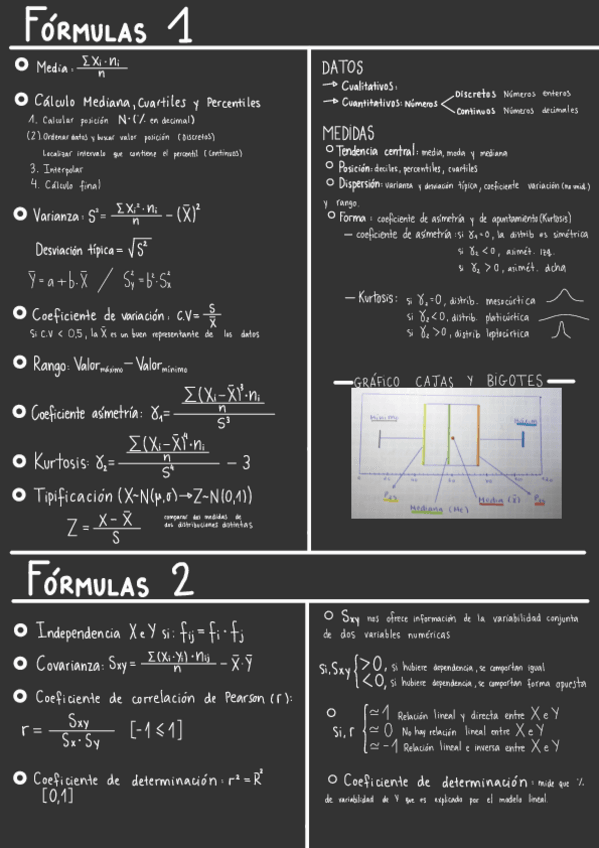 FÓRMULAS 1
Media: Σxi·ni / n
Cálculo Mediana, Cuartiles y Percentiles
1. Calcular posición N·(% en decimal)
(2). Ordenar datos y buscar valor posición (Discretos)
Localizar intervalo que contiene el percentil (Continuos)
3. Interpolar
4. Cálculo final
Varianza: S² = Σxi²·ni / n − (X̄)²
Desviación típica = √S²
Ȳ = a + b·X̄ / S²y = b²·S²x
Coeficiente de variación: C.V = S / X̄
Si C.V < 0,5, la X̄ es un buen representante de los datos
Rango: Valor máximo − Valor mínimo
Coeficiente asimetría: γ₁ = Σ(Xi−X̄)³·ni / n / S³
Kurtosis: γ₂ = Σ(Xi−X̄)⁴·ni / n / S⁴ − 3
Tipificación (X~N(μ,σ)→Z~N(0,1))
Z = X − X̄ / S
comparar dos medidas de
dos distribuciones distintas
DATOS
→ Cualitativos:
→ Cuantitativos: Números
Discretos Números enteros
Continuos Números decimales
MEDIDAS
Tendencia central: media, moda y mediana
Posición: deciles, percentiles, cuartiles
Dispersión: varianza y desviación típica, coeficiente variación (no mid.)
y rango.
Forma: coeficiente de asimetría y de apuntamiento (Kurtosis)
— coeficiente de asimetría: si γ₁ = 0, la distrib es simétrica
si γ₁ < 0, asimét. izq.
si γ₁ > 0, asimét. dcha
— Kurtosis: si γ₂ = 0, distrib. mesocúrtica
si γ₂ < 0, distrib. platicúrtica
si γ₂ > 0, distrib leptocúrtica
GRÁFICO CAJAS Y BIGOTES
Mínimo
Máximo
P25
Mediana (Me)
Media (X̄)
P75
FÓRMULAS 2
Independencia X e Y si: fij = fi · fj
Covarianza: Sxy = Σ(Xi·Yi)·nij / n − X̄·Ȳ
Coeficiente de correlación de Pearson (r):
r = Sxy / Sx·Sy [-1 ≤ 1]
Coeficiente de determinación: r² = R²
[0,1]
Sxy nos ofrece información de la variabilidad conjunta
de dos variables numéricas
Si, Sxy { >0, si hubiere dependencia, se comportan igual
<0, si hubiere dependencia, se comportan forma opuesta
Si, r { ≃ 1 Relación lineal y directa entre X e Y
≃ 0 No hay relación lineal entre X e Y
≃ -1 Relación lineal e inversa entre X e Y
Coeficiente de determinación: mide que %
de variabilidad de Y que es explicado por el modelo lineal.